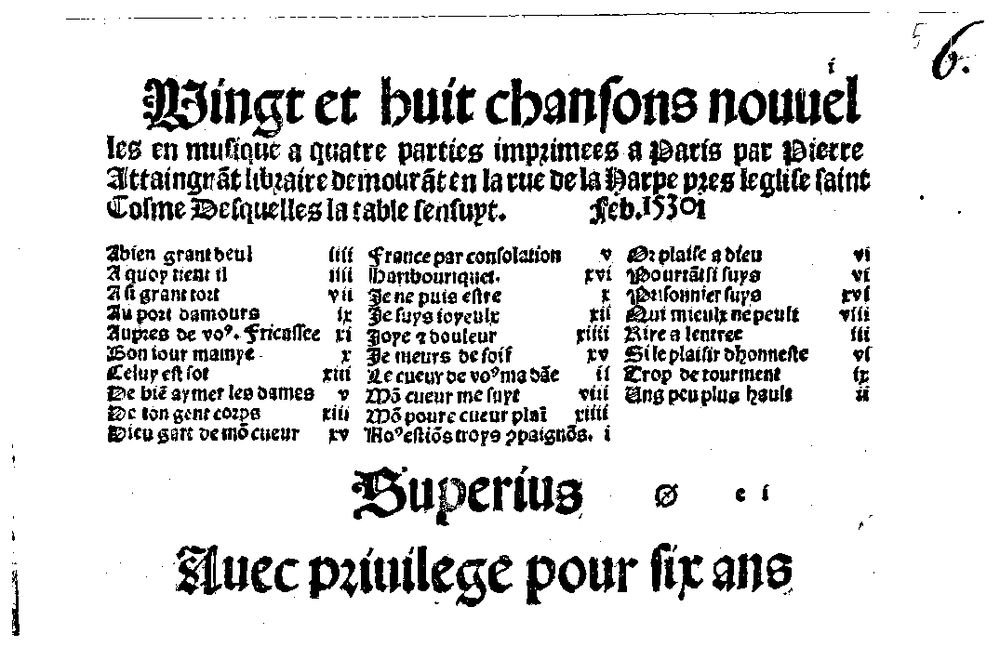 5 6.
i
Vingt et huit chansons nouuel
les en musique a quatre parties imprimees a Paris par Pierre
Attaingnãt libraire demourãt en la rue de la Harpe pres leglise saint
Cosme Desquelles la table sensuyt. Feb. 1530 i
Abien grant deul iiii
A quoy tient il iiii
A si grant tort vii
Au port damours ix
Aupres de voꝰ. Fricassee xi
Bon iour mamye x
Celuy est sot xiii
De biẽ aymer les dames v
De ton gent corps xiii
Dieu gart de mõ cueur xv
France par consolation v
Hanbouriquet. xvi
Je ne puis estre x
Je suys ioyeulx xii
Joye ⁊ douleur xiiii
Je meurs de soif xv
Le cueur de voꝰ ma dãe ii
Mõ cueur me suyt viii
Mõ poure cueur plaĩ xiiii
Noꝰ estiõs troys ꝯpaignõs. i
Or plaise a dieu vi
Pourtãt si suys vi
Prisonnier suys xvi
Qui mieulx ne peult viii
Rire a lentree iii
Si le plaisir dhonneste vi
Trop de tourment ix
Ung peu plus hault ii
Superius Ø e i
Auec priuilege pour six ans